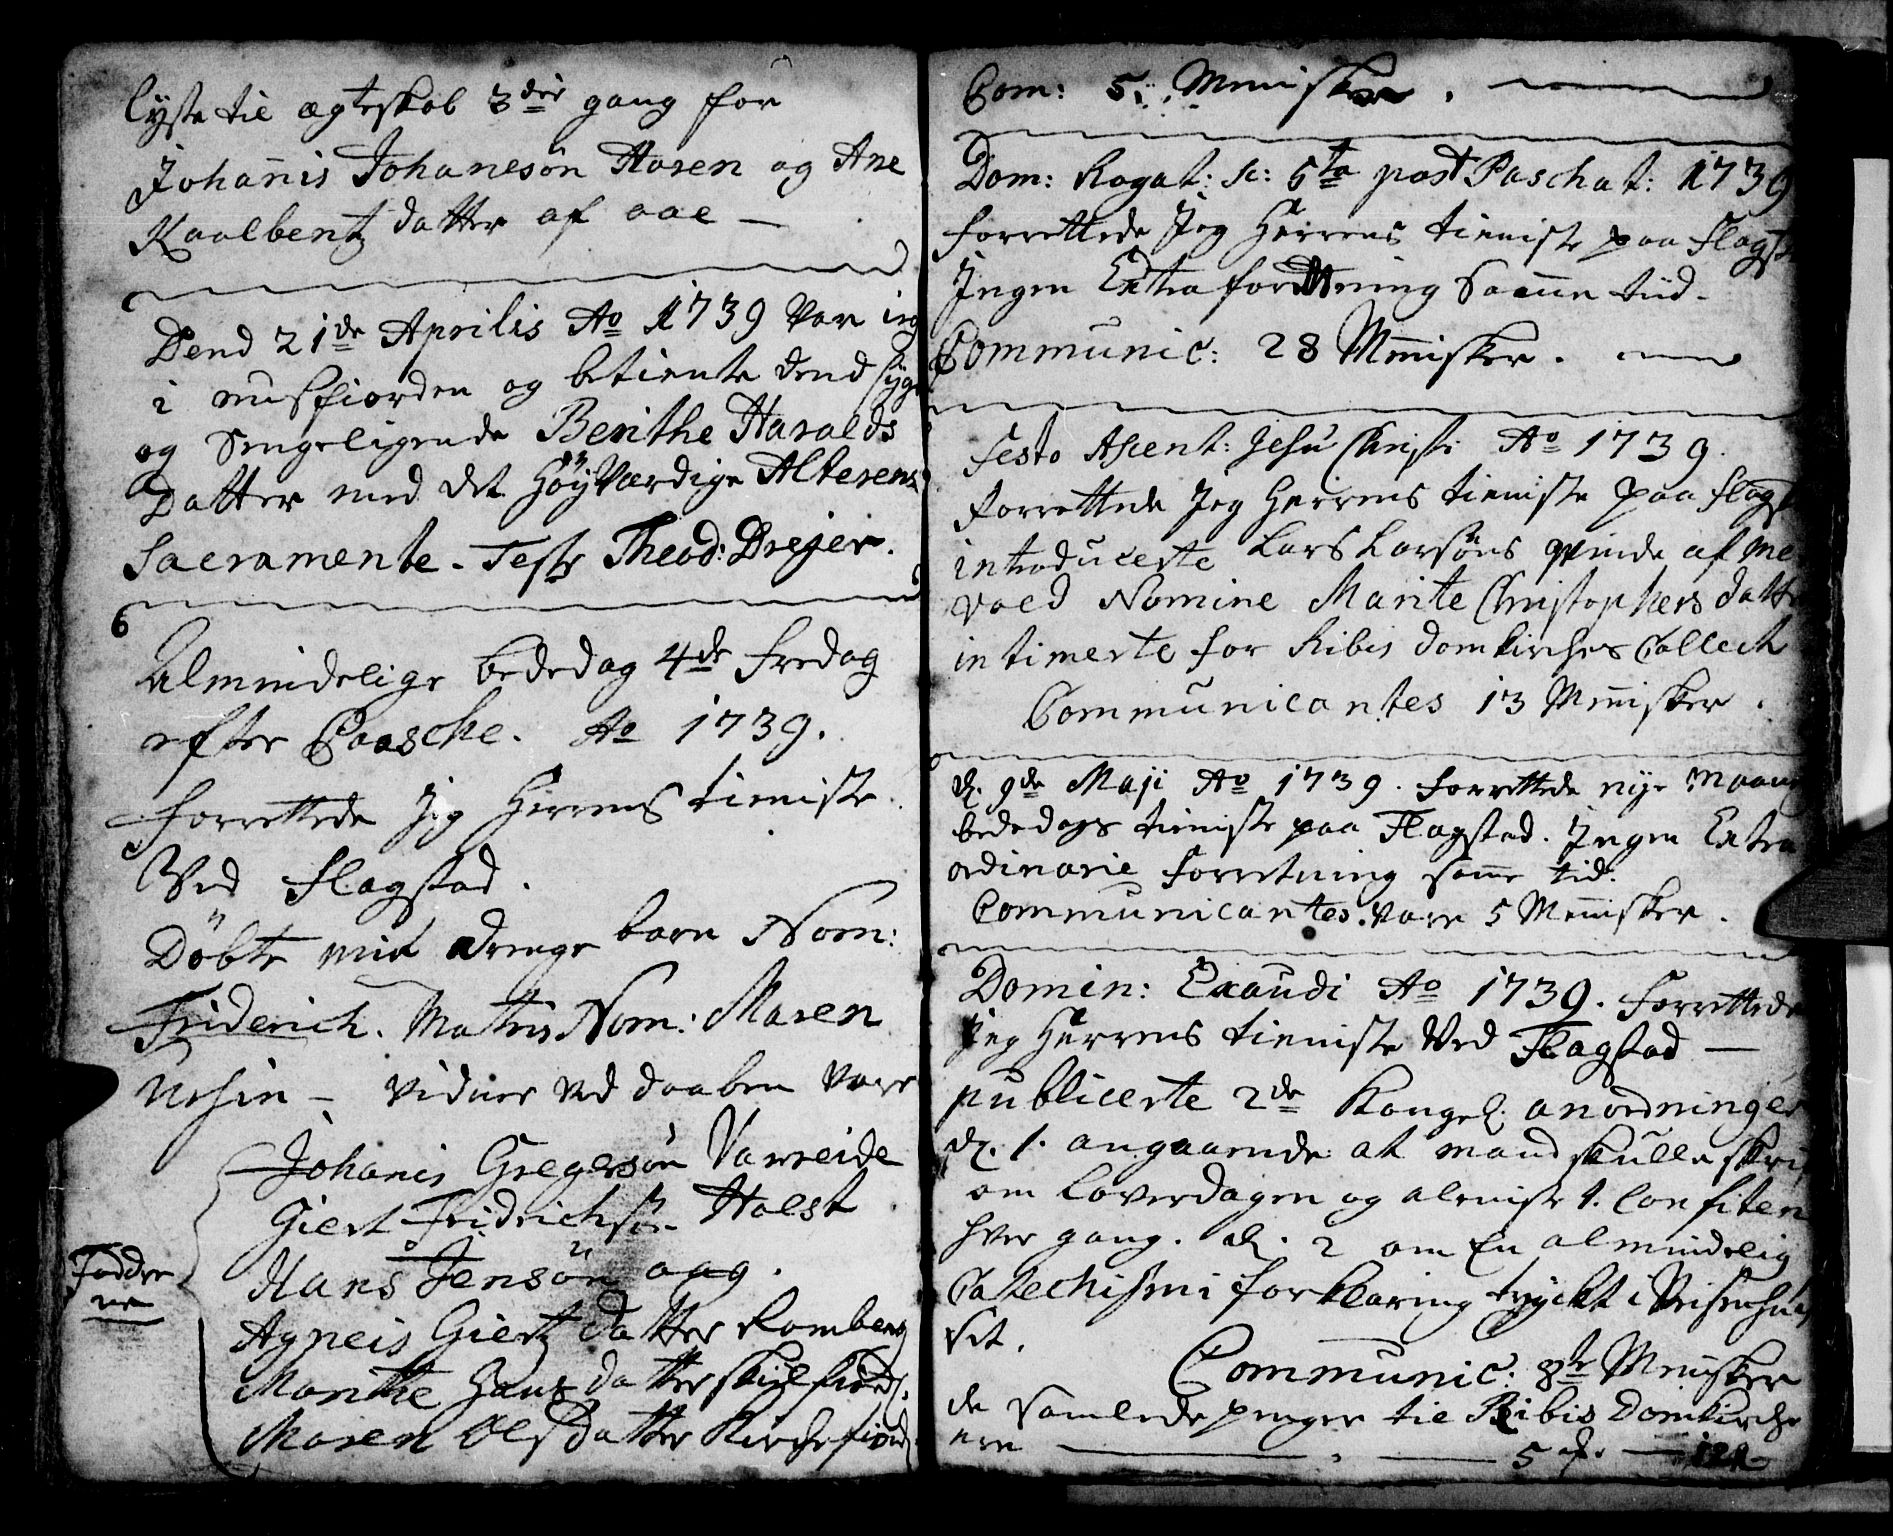 lyste til ægteskab 3die gang for
Johannis Johanesøn Hosen og Ane
Kaalbentz datter af aae —
Dend 21de Aprilis Ao 1739 var ieg
i nusfiorden og betiente dend syge
og Sengeligende Berithe Haralds
Datter med det Høyværdige Alterens
Sacramente. Teste Theod: Drejer.
6
Almindelige bededag 4de Fredag
efter Paasche. Ao 1739.
Forrettede Jeg Herrens tieniste
Ved Flagstad.
Döbte mit drenge barn Nom:
Friderich. Matris Nom: Maren
— vidner ved daaben vare
Johanis Gregersøn Varreide
Giert Fridrichsøn Holst
Hans Jensön aag.
Fadder
ne
Agneis Giertz datter Romberg
Marithe Hans datter Skielfiord.
Maren Olsdatter Kirchefiord
Com: 5. Mennisker.
Dom: Rogat: sc: 5ta post Paschat: 1739
forrettede Jeg Herrens tieniste paa Flagst
Ingen Extra forretning Samme tiid.
Communic: 28 Mennisker.
Festo Ascent: Jesu Christi Ao 1739.
Forrettede Jeg Herrens tieniste paa Flagst
introducerte Lars Larsöns qvinde af Ne
vaed Nomine Marite Christophers datt
intimerte for Ribis domkirches Collect
Communicantes 13 Mennisker.
d. 9de Maji Ao 1739. Forrettede nye Maane
bededags tieniste paa Flagstad. Ingen Extra
ordinarie Forretning samme tid.
Communicantes vare 5 Mennisker.
Domin: Exaudi Ao 1739. Forrettede
Jeg Herrens tieniste Ved Flagstad —
publicerte 2de Kongel. anordninger
d. 1. angaaende at mand skulle skri
om Løverdagen og alenist 1. Confiten
hver gang. d. 2 om En almindelig
Catechismi forklaring tryckt i Veisenhu
set.
Communic: 8te Mennisker
de samlede penger til Ribis Domkirche
ere — 5 — 12